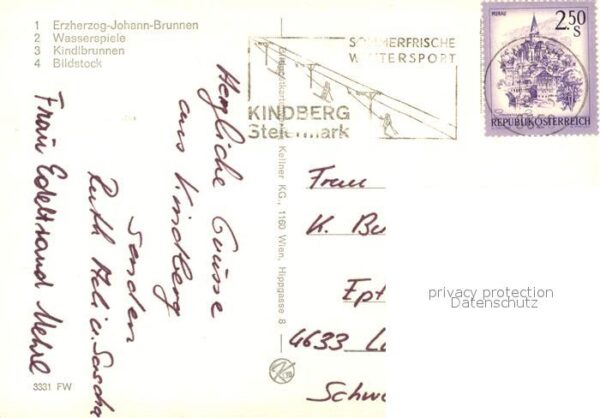 1 Erzherzog-Johann-Brunnen
2 Wasserspiele
3 Kindlbrunnen
4 Bildstock
SOMMERFRISCHE
WINTERSPORT
KINDBERG
Steiermark
MURAU
2.50
S
REPUBLIK ÖSTERREICH
Herzliche Grüsse
aus Kindberg
senden
Ruth Heli u. Sascha
Frau Edeltraud Mehrl
Kellner KG., 1160 Wien, Hippgasse 8
Frau
K. Bu
Ept
4633 L
Schw
privacy protection
Datenschutz
3331 FW